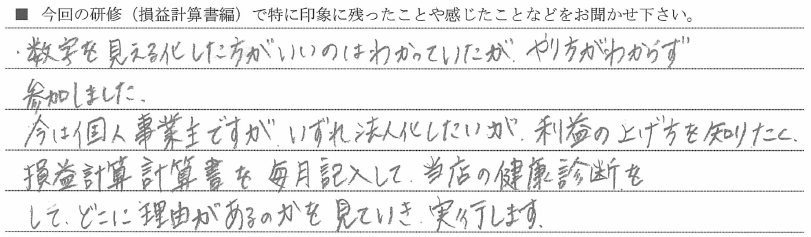 ■ 今回の研修（損益計算書編）で特に印象に残ったことや感じたことなどをお聞かせ下さい。
・数字を見える化した方がいいのはわかっていたが、やり方がわからず
参加しました、
今は個人事業主ですが、いずれ法人化したいが、利益の上げ方を知りたく、
損益計算計算書を毎月記入して、当店の健康診断を
して、どこに理由があるのかを見ていき、実行します。